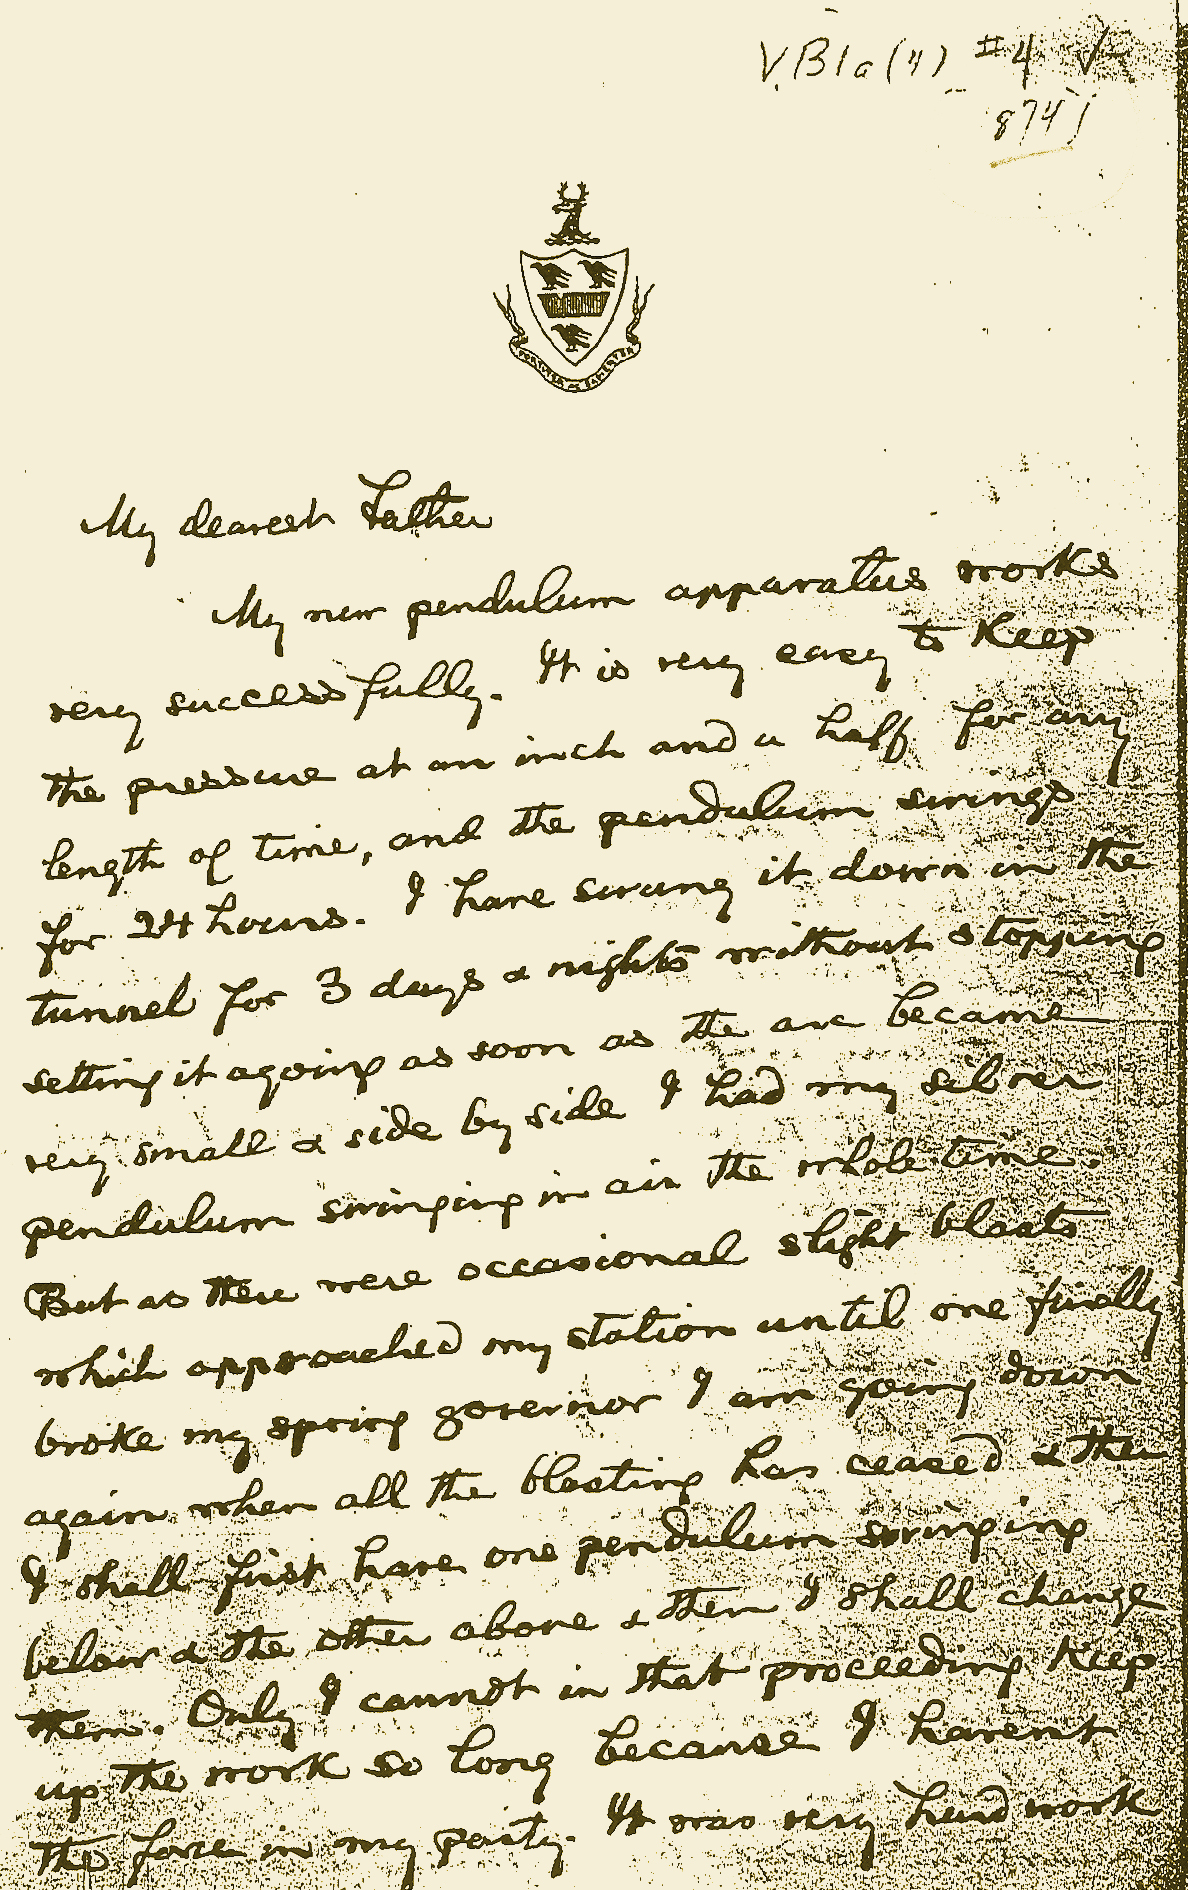 V.B1a(4) #4
874
FORTITER ET SAPIENTER
My dearest Father
My new pendulum apparatus works
very successfully. It is very easy to keep
the pressure at an inch and a half for any
length of time, and the pendulum swings
for 24 hours. I have swung it down in the
tunnel for 3 days & nights without stopping
setting it agoing as soon as the arc became
very small & side by side I had my silver
pendulum swinging in air the whole time.
But as there were occasional slight blasts
which approached my station until one finally
broke my spring governor I am going down
again when all the blasting has ceased & then
I shall first have one pendulum swinging
below & the other above & then I shall change
them. Only I cannot in that proceeding keep
up the work so long because I havent
the force in my party. It was very hard work